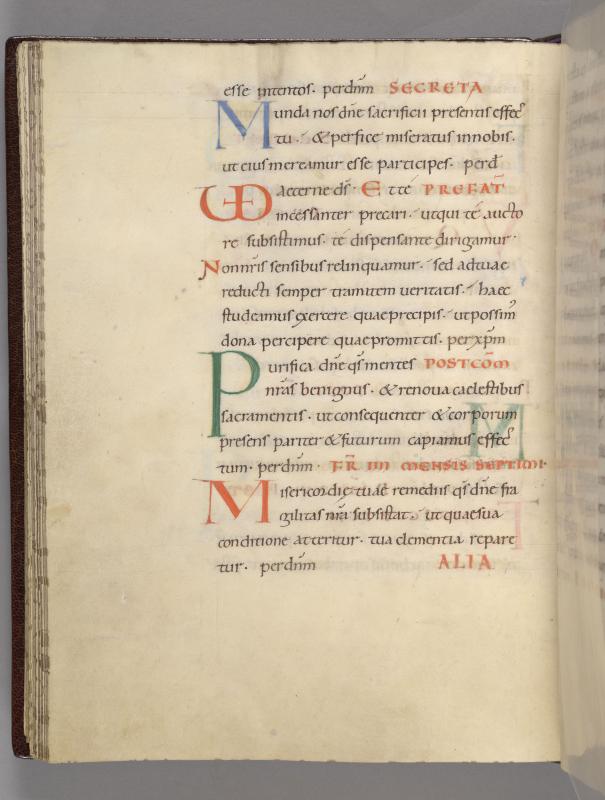 esse intentos. perdnm̄ SECRETA
Munda nos dn̄e sacrificii presentis effec
tu. & perfice miseratus in nobis.
ut eius mereamur esse participes. perd̄
UD aeterne ds̄. Et te PREFAT̄
incessanter precari. ut qui te aucto
re subsistimus. te dispensante dirigamur.
Non nr̄is sensibus relinquamur. sed ad tuae
reducti semper tramitem veritatis. haec
studeamus exercere quae precipis. ut possim̄
dona percipere quae promittis. per xp̄m
Purifica dn̄e qs̄ mentes POSTCOM̄
nr̄as benignus. & renova caelestibus
sacramentis. ut consequenter & corporum
presens pariter & futurum capiamus effec
tum. perdnm̄. FR̄ IIII MENSIS SEPTIMI.
Misericordie tuae remediis qs̄ dn̄e fra
gilitas nr̄a subsistat. ut quae sua
conditione atteritur. tua clementia repare
tur. perdnm̄ ALIA